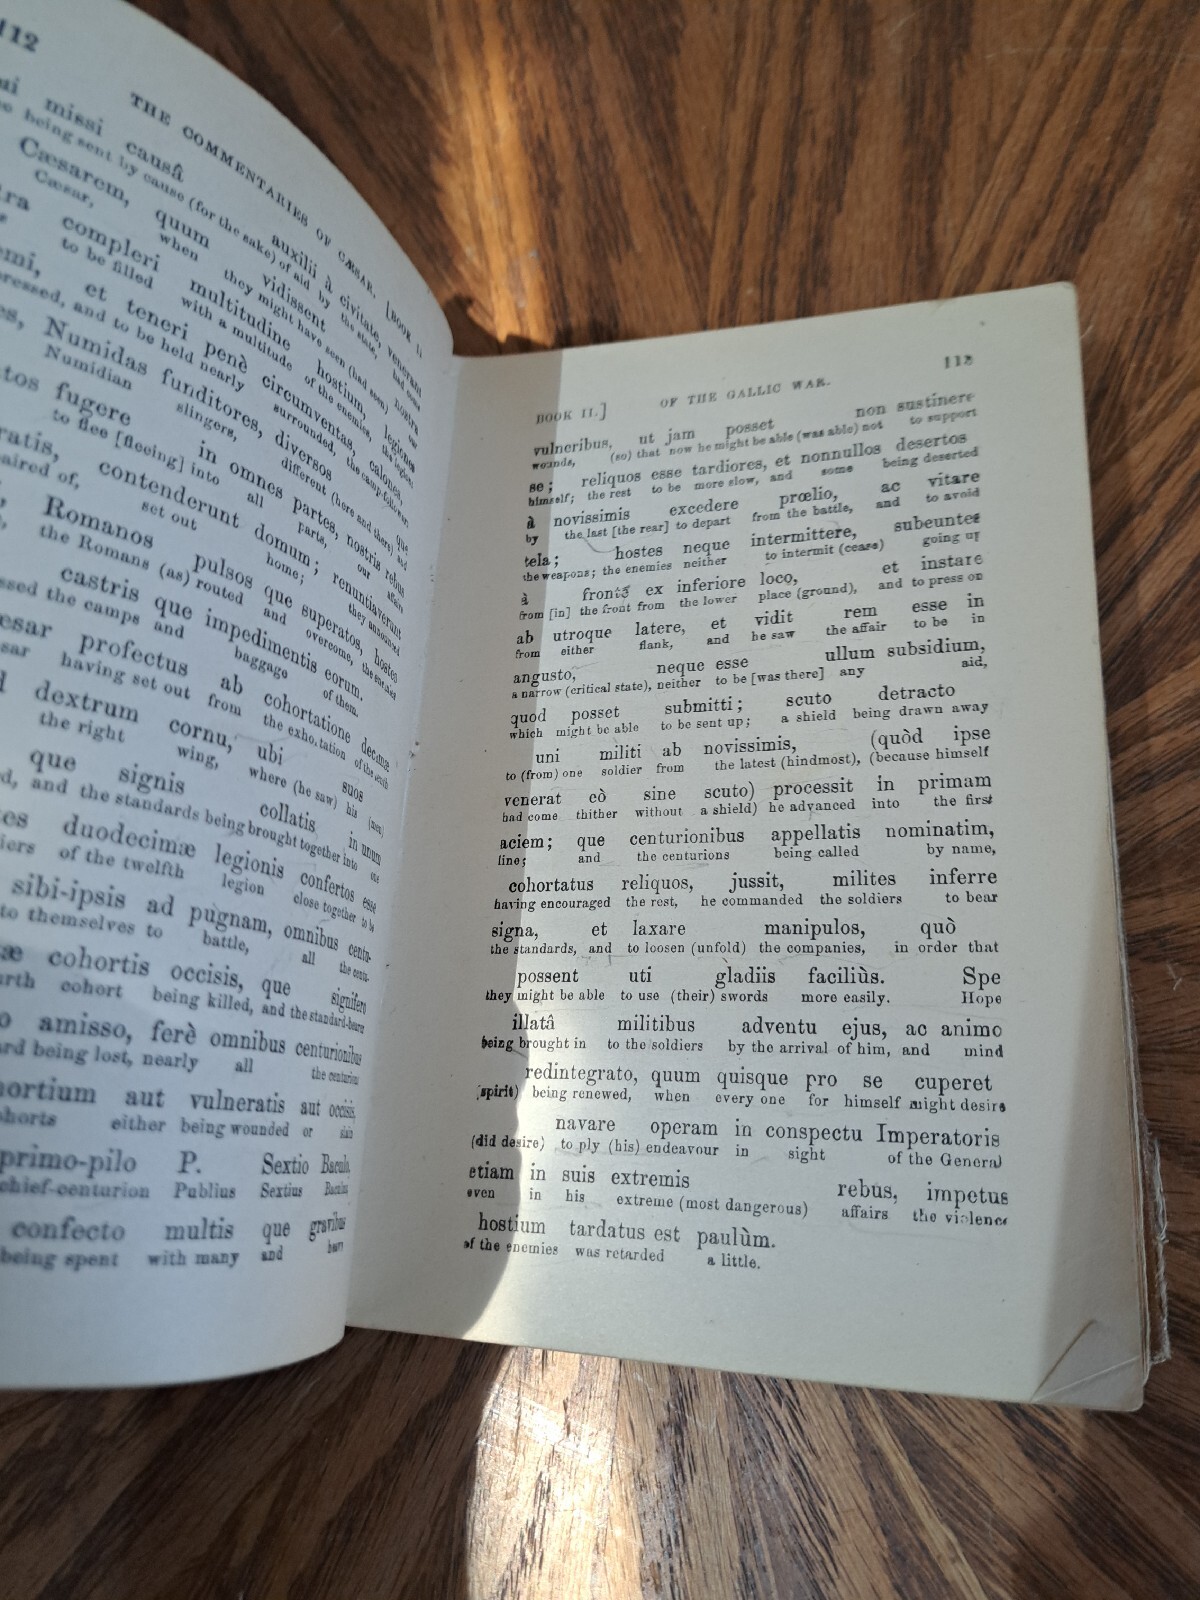 112
THE COMMENTARIES OF CÆSAR. [BOOK II
missi causâ auxilii à civitate, venerant
being sent by cause (for the sake) of aid by the state, had come
Cæsarem, quum vidissent nostra
Cæsar, when they might have seen (had seen) our
compleri multitudine hostium, legiones
to be filled with a multitude of the enemies, the legions
et teneri penè circumventas, calones,
and to be held nearly surrounded, the camp-followers
Numidas funditores, diversos que
Numidian slingers, different (here and there) and
fugere in omnes partes, nostris rebus
to flee [fleeing] into all parts, our affairs
contenderunt domum; renuntiaverunt
of, set out home; they announced
Romanos pulsos que superatos, hostes
the Romans (as) routed and overcome, the enemies
castris que impedimentis eorum.
the camps and baggage of them.
profectus ab cohortatione decimæ
having set out from the exhortation of the tenth
dextrum cornu, ubi suos
the right wing, where (he saw) his (men)
que signis collatis in unum
and the standards being brought together into one
duodecimæ legionis confertos esse
of the twelfth legion close together to be
sibi-ipsis ad pugnam, omnibus centu-
to themselves to battle, all the centu-
cohortis occisis, que signifero
cohort being killed, and the standard-bearer
amisso, ferè omnibus centurionibus
being lost, nearly all the centurions
aut vulneratis aut occisis,
either being wounded or slain
primo-pilo P. Sextio Baculo,
chief-centurion Publius Sextius Baculus
confecto multis que gravibus
being spent with many and heavy
BOOK II.] OF THE GALLIC WAR. 113
vulneribus, ut jam posset non sustinere
wounds, (so) that now he might be able (was able) not to support
se; reliquos esse tardiores, et nonnullos desertos
himself; the rest to be more slow, and some being deserted
à novissimis excedere prœlio, ac vitare
by the last [the rear] to depart from the battle, and to avoid
tela; hostes neque intermittere, subeuntes
the weapons; the enemies neither to intermit (cease) going up
à fronte ex inferiore loco, et instare
from [in] the front from the lower place (ground), and to press on
ab utroque latere, et vidit rem esse in
from either flank, and he saw the affair to be in
angusto, neque esse ullum subsidium,
a narrow (critical state), neither to be [was there] any aid,
quod posset submitti; scuto detracto
which might be able to be sent up; a shield being drawn away
uni militi ab novissimis, (quòd ipse
to (from) one soldier from the latest (hindmost), (because himself
venerat eò sine scuto) processit in primam
had come thither without a shield) he advanced into the first
aciem; que centurionibus appellatis nominatim,
line; and the centurions being called by name,
cohortatus reliquos, jussit, milites inferre
having encouraged the rest, he commanded the soldiers to bear
signa, et laxare manipulos, quò
the standards, and to loosen (unfold) the companies, in order that
possent uti gladiis faciliùs. Spe
they might be able to use (their) swords more easily. Hope
illatâ militibus adventu ejus, ac animo
being brought in to the soldiers by the arrival of him, and mind
redintegrato, quum quisque pro se cuperet
(spirit) being renewed, when every one for himself might desire
navare operam in conspectu Imperatoris
(did desire) to ply (his) endeavour in sight of the General
etiam in suis extremis rebus, impetus
even in his extreme (most dangerous) affairs the violence
hostium tardatus est paulùm.
of the enemies was retarded a little.